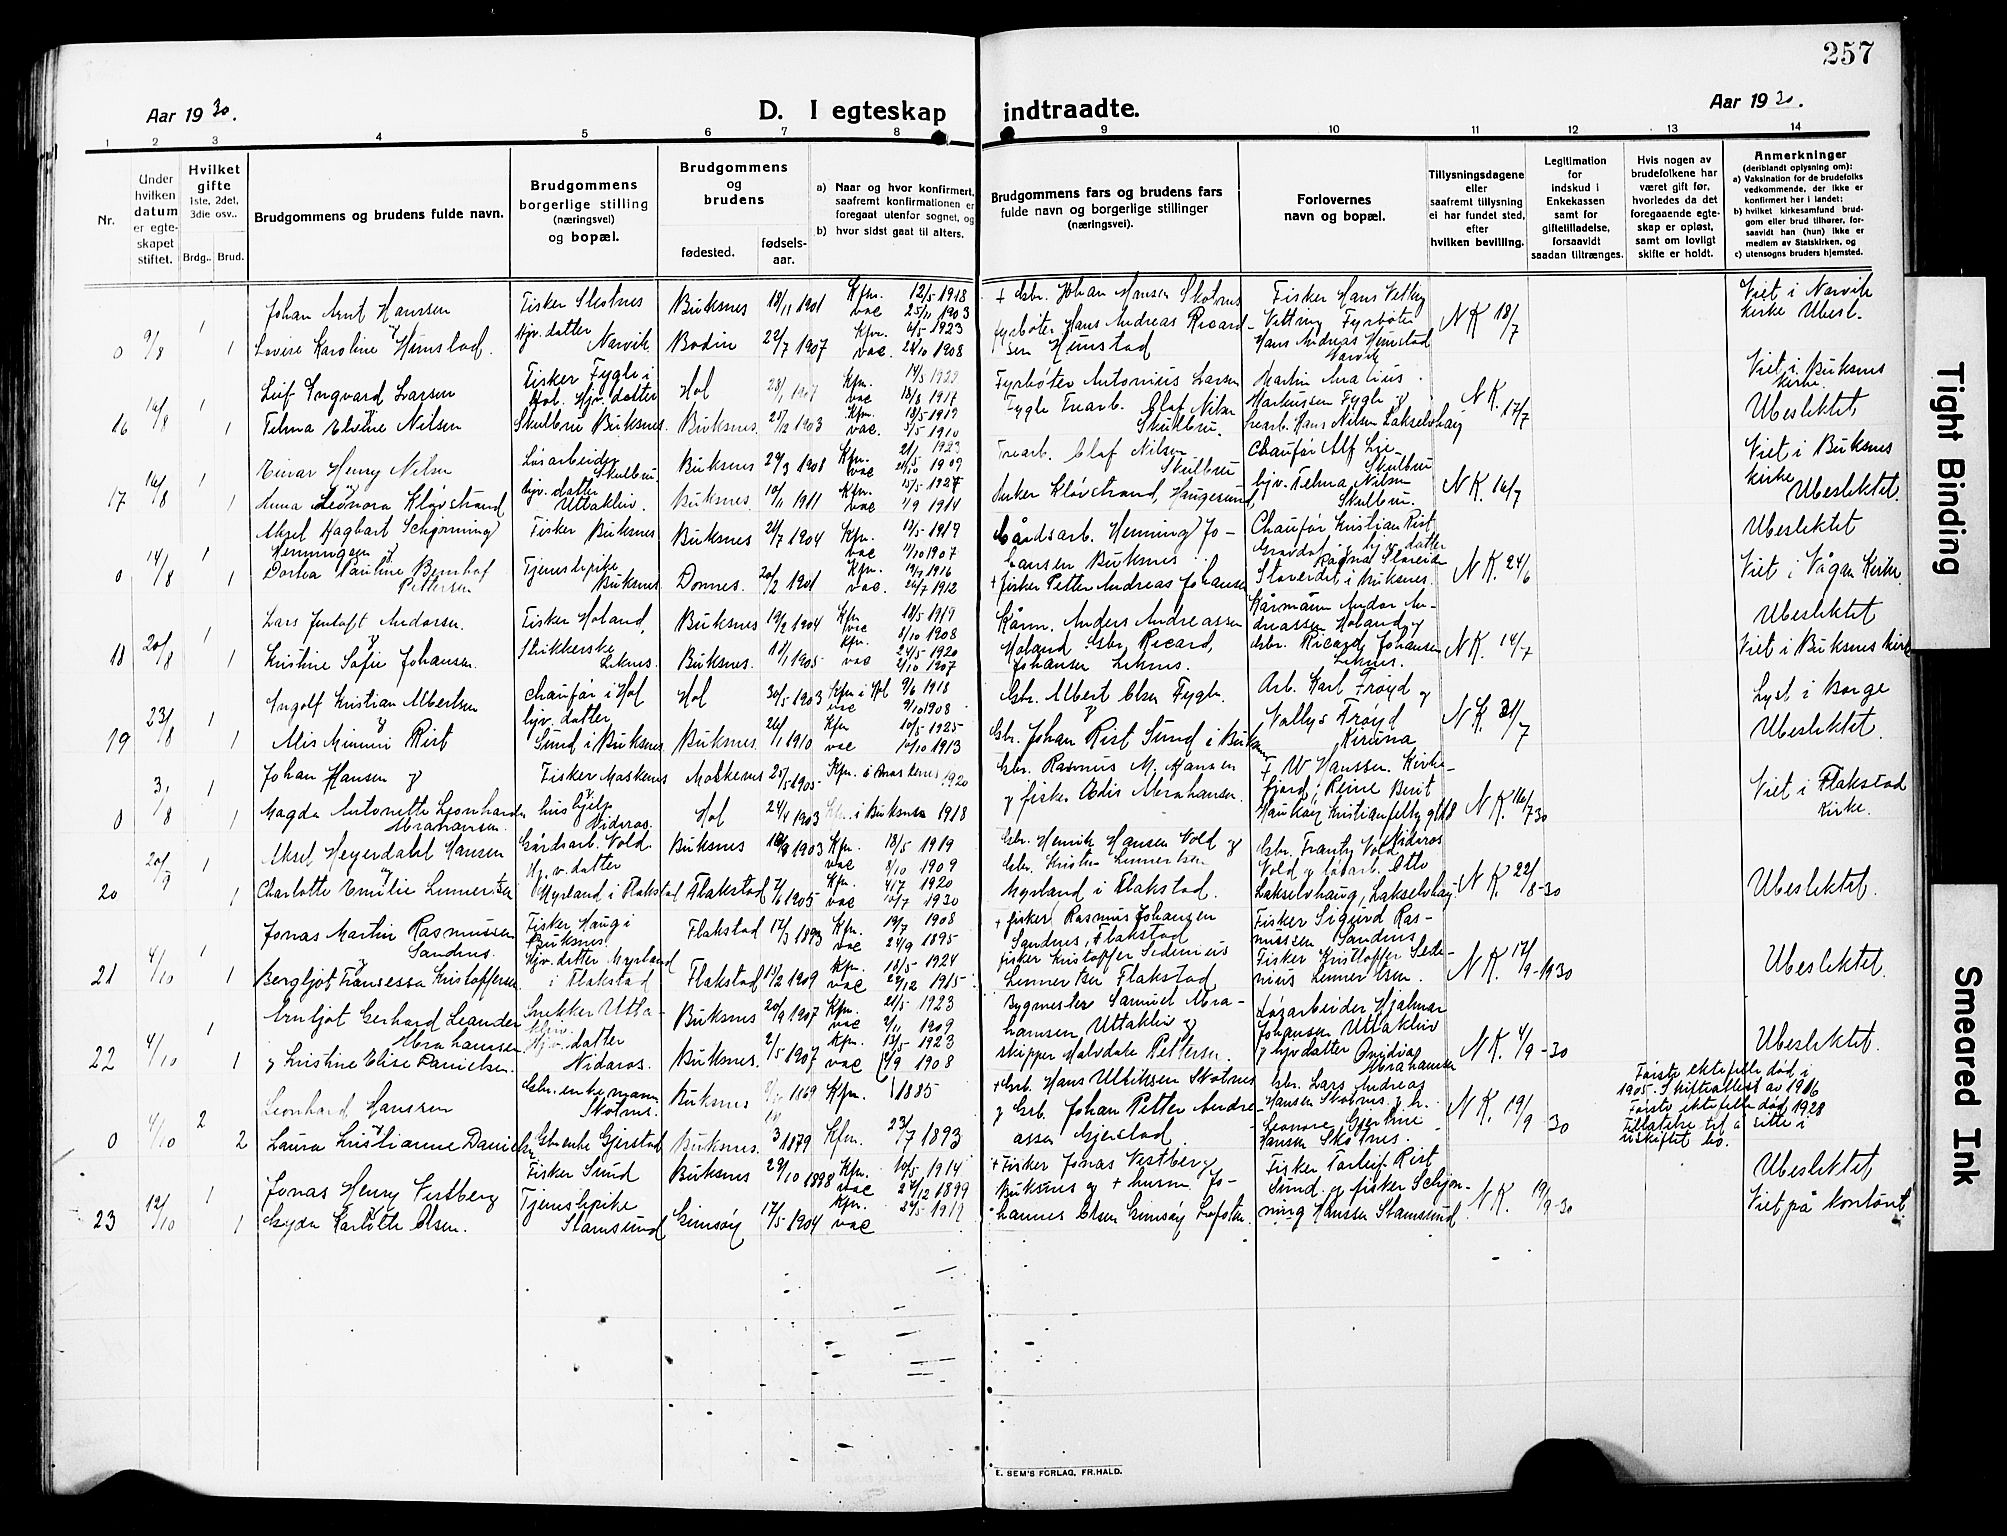 257
Aar 1930.
D. I egteskap indtraadte.
Aar 1930.
1 2 3 4 5 6 7 8 9 10 11 12 13 14
Nr.
Under hvilken datum er egteskapet stiftet.
Hvilket gifte 1ste, 2det, 3die osv..
Brdg.. Brud.
Brudgommens og brudens fulde navn.
Brudgommens borgerlige stilling (næringsvei) og bopæl.
Brudgommens og brudens
fødested.
fødsels-aar.
a) Naar og hvor konfirmert, saafremt konfirmationen er foregaat utenfor sognet, og
b) hvor sidst gaat til alters.
Brudgommens fars og brudens fars fulde navn og borgerlige stillinger (næringsvei).
Forlovernes navn og bopæl.
Tillysningsdagene eller saafremt tillysning ei har fundet sted, efter hvilken bevilling.
Legitimation for indskud i Enkekassen samt for giftetilladelse, forsaavidt saadan tiltrænges.
Hvis nogen av brudefolkene har været gift før, hvorledes da det foregaaende egteskap er opløst, samt om lovligt skifte er holdt.
Anmerkninger (deriblandt oplysning om):
a) Vaksination for de brudefolks vedkommende, der ikke er konfirmert her i landet:
b) hvilket kirkesamfund brudgom eller brud tilhører, forsaavidt han (hun) ikke er medlem av Statskirken, og
c) utensogns bruders hjemsted.
Johan Arnt Hanssen Fisker Skotnes Buksnes 18/11 1901 Kfm. 12/5 1918 + Gbr. Johan Hansen Skotnes
vac 25/11 1903
0 9/8 1 1 Lovise Karoline Hemstad. Hjv. datter Narvik Bodin 22/7 1907 Kfm. 1923 vac. 24/10 1908
Fyrbøter Hans Andreas Ricardsen Hemstad
Fisker Hans Vetting Fyrbøter Hans Andreas Hemstad Narvik
NK 18/7
Viet i Narvik kirke Ubesl.
Leif Ingvard Larsen Fisker Fygle i Hol. Hjv. datter Hol Kfm. 14/5 1922 vac 18/8 1917
16 16/8 1 1 Telma Elvine Nilsen Skulbru Buksnes. Buksnes. 25/12 1903 Kfm. 18/5 1919 vac. 1910
Fyrbøter Antonius Larsen Fygle Trearb. Olaf Nilsen Skulbru.
Martin Analius Markussen Fygle Hans Nilsen Lakselvhaug
N K. 17/7
Viet i Buksnes kirke. Ubeslektet
Einar Henry Nilsen Løsarbeider Skulbru. Buksnes 29/3 1908 Kfm. 21/5 1923 vac 1909
17 16/8 1 1 Anna Leonora Kløvstrand hjv. datter Uttakliv. Buksnes 10/11 1911 Kfm. 15/5 1927 vac 1/9 1914
Trearb. Olaf Nilsen Skulbru
Kløvstrand, Haugesund
Chaufør Alf Skulbru hjv. Telma Nilsen Skulbru.
N K. 16/7
Viet i Buksnes kirke Ubeslektet.
Aksel Hagbart Schjønning Henningsen Fisker Buksnes Buksnes 21/7 1904 Kfm. 18/5 1919 vac 11/10 1907
0 14/8 1 1 Dortea Pauline Bernhof Pettersen Tjenestepike Buksnes Dønnes. 20/2 1901 Kfm. 1916 vac. 26/7 1912
Gårdsarb. Henning Johansen Buksnes
+ fisker Petter Andreas Johansen
Chaufør Kristian Rist Gravdal og hjv. datter Ragna Stavereidet i Buksnes.
N K. 24/6
Ubeslektet Viet i Vågan Kirke.
Lars Jentoft Andorsen. Fisker Holand, Buksnes 19/2 1904 Kfm 18/5 1919 vac 8/10 1908
18 20/8 1 1 Kristine Sofie Johansen. Strikkerske Leknes. Buksnes. 18/1 1905 Kfm. 24/5 1920 vac 2/10 1907
Kårm. Anders Andreassen Holand Gbr. Ricard, Johansen Leknes.
Kårmann Andor Andreassen Holand og Gbr. Ricard Johansen Leknes.
NK. 14/7
Ubeslektet Viet i Buksnes kirke
Ingolf Kristian Albertsen chaufør i Hol Hol 30/5 1903 Kfm i Hol 9/6 1918 vac 9/10 1908
19 23/8 1 1 Alis Mimmi Rist hjv. datter Sund i Buksnes Buksnes. 26/1 1910 Kfm 10/5 1925 vac 10/10 1913
Gbr. Albert Olsen Fygle. Gbr. Johan Rist Sund i Buksnes
Arb. Karl Frøyd og Vallys Frøyd Kiruna
N K. 31/7
Lyst i Borge Ubeslektet.
Johan Hansen Fisker Moskenes Moskenes 25/5 1905 Kfm. i Moskenes 1920
0 3/8 1 1 Magda Antonette Leonharda Abrahamsen. hushjelp Nidaros. Hol 24/4 1903 Kfm. i Buksnes 1918
Gbr. Rasmus M. Hansen
og fisker Odis Abrahamsen.
F W Hanssen. Kirkefjord, Reine Berit
N K. 16/7 30
Viet i Flakstad Kirke.
Aksel Heyerdahl Hansen Gårdsarb. Vold Buksnes 1903 Kfm. 18/5 1919 vac 8/10 1909
20 20/9 1 1 Charlotte Emilie Lennertsen Hj. v. datter Myrland i Flakstad Flakstad 1905 Kfm. 1920 vac 10/7 1930
Gbr. Henrik Hansen Vold og Gbr. Kristen Lennertsen Myrland i Flakstad.
Gbr. Frantz Vold Vold og løsarb. Otto Lakselvhaug, Lakselvhaug.
N K. 22/8-30
Ubeslektet.
Jonas Martin Rasmussen Sandnes. Fisker Haug i Buksnes Flakstad 12/3 1893 Kfm. 19/7 1908 vac 24/9 1895
21 4/10 1 1 Bergljot Fransessa Kristoffersen. Hjv. datter Myrland i Flakstad Flakstad 19/2 1909 Kfm. 18/5 1924 vac 29/12 1915
+ fisker Rasmus Johansen Sandnes, Flakstad fisker Kristoffer Sedenius Lennertsen Flakstad
Fisker Sigurd Rasmussen Sandnes Fisker Kristoffer Sedenius Lennertsen.
N K. 17/9-1930
Ubeslektet.
Arnljot Gerhard Leander Abrahamsen Snekker Uttakliv Buksnes 20/9 1907 Kfm. 21/5 1923 vac 2/11 1909
22 4/10 1 1 Kristine Elise Danielsen. Hjv. datter Nidaros. Buksnes. 2/5 1907 Kfm. 13/5 1923 vac 6/9 1908
Bygmester Samuel Abrahamsen Uttakliv og skipper Halvdale Pettersen.
Løsarbeider Hjalmar Johansen Uttakliv og hjv datter Ovidia Abrahamsen
N K. 4/9-30
Ubeslektet.
Leonhard Hanssen Gbr. enkemann Skotnes. Buksnes 1869 Kfm. 1885
0 4/10 2 2 Laura Kristianne Danielsen Gbr enke Gjerstad Buksnes. 1879 Kfm. 23/7 1893
+ Gbr. Hans Ulriksen Skotnes og Gbr. Johan Petter Andreassen Gjerstad
Gbr. Lars Andreas Hansen Skotnes. Leonore Gjertine Hansen Skotnes.
N K. 19/9 30
Første ektefelle død i 1905. Skifteattest av 1916 Første ektefelle død 1928 Tillatelse til å sitte i uskiftet bo.
Jonas Henry Vestberg Fisker Sund Buksnes 29/10 1898 Kfm. 10/5 1914 vac 24/12 1899
23 12/10 1 1 Gyda Karlotte Olsen. Tjenestepike Stamsund Gimsøy 17/5 1904 Kfm. vac
+ Fisker Jonas Vestberg Buksnes og + husm. Johannes Olsen Gimsøy Lofoten.
Fisker Torleif Rist Sund og fisker Schjønning Hanssen Stamsund
N K. 19/9-30
Ubeslektet Viet på kontoret.
E. SEM'S FORLAG, FR.HALD.
Tight Binding
Smeared Ink